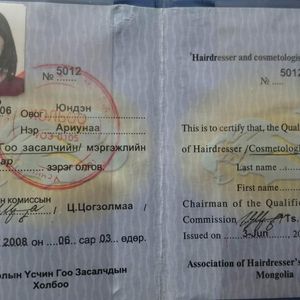 № 5012
06 Овог Юндэн
Нэр Ариунаа
Гоо засалчийн/ мэргэжлийн
зэрэг олгов.
н комиссын
Ц.Цогзолмаа
2008 он 06 сар 03 өдөр.
лын Үсчин Гоо Засалчдын
Холбоо
"Hairdresser and cosmetologis
№ 501
This is to certify, that the Qual
of Hairdresser /Cosmetolog
Last name
First name
Chairman of the Qualific
Commission Ts.
Issued on 3-Jun 20
Association of Hairdresser's
Mongolia